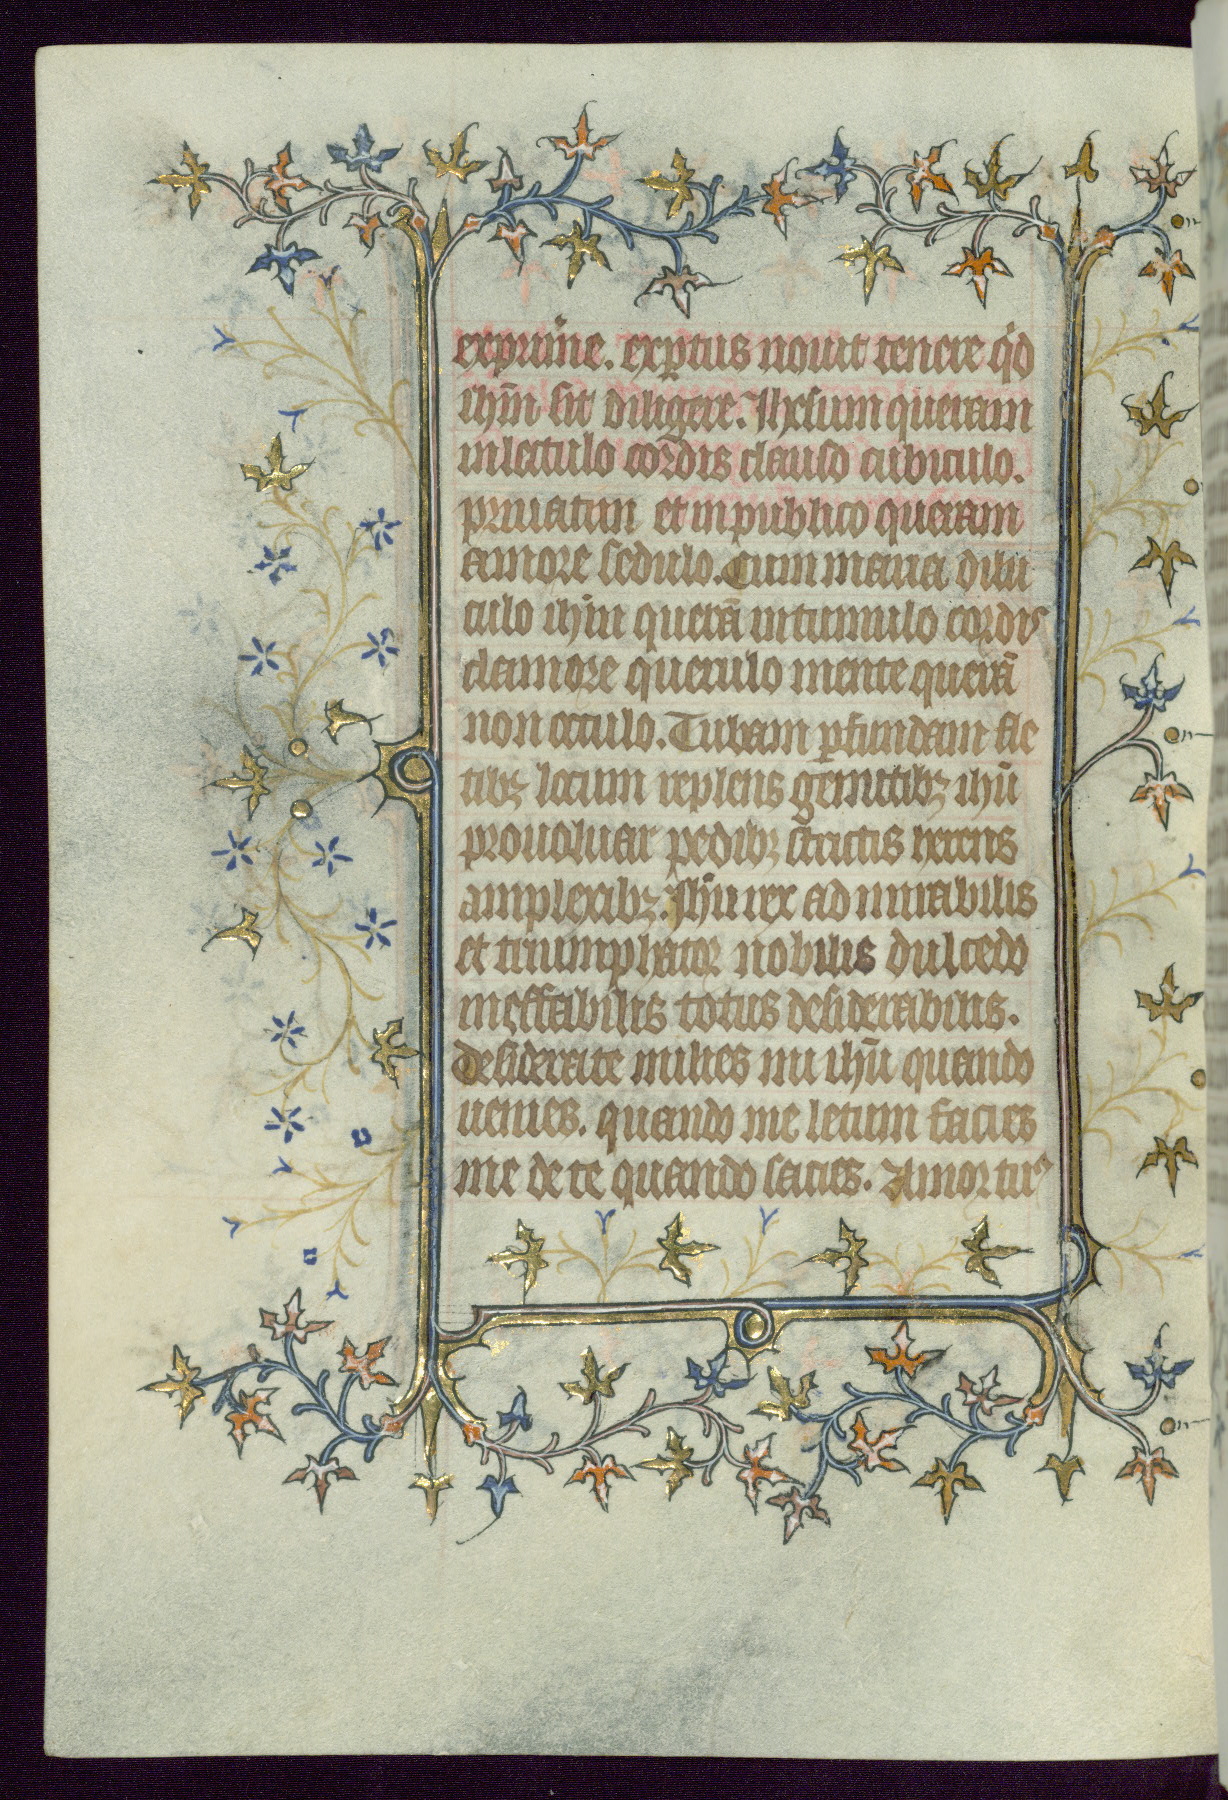 exprime. exptus nouit tenere qd
ihm sit diligere. Ihesum queram
in lectulo cordis clauso cubiculo.
priuatim et in publico queram
amore sedulo. Cum maria dilu
culo ihm querā in tumulo cordis
clamore querulo mente querā
non oculo. Tubam pfundam fle
tibꝫ locum replens gemitibꝫ ihū
prouoluar pedibꝫ strictis herens
amplexibꝫ. Ihū rex admirabilis
et triumphator nobilis dulcedo
ineffabilis totus desiderabilis.
Desiderate milies mi ihū quando
uenies. quando me letum facies
me de te quando sacies. Amor tuꝰ